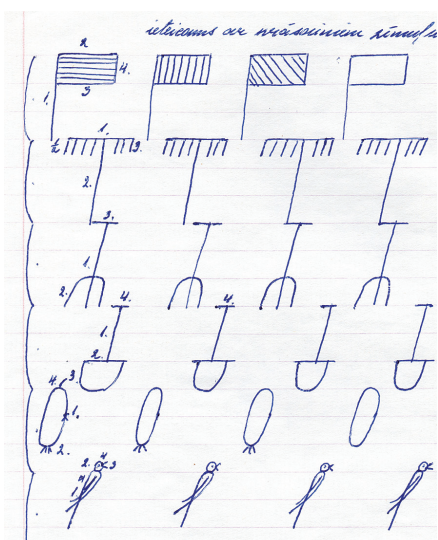 ieteicams ar krāsainiem zīmuļi
2
1. 4.
3
1.
1/2 9.
2.
3.
1.
2.
4. 4.
1.
2.
4. 3.
1.
2.
4
2. 3
1